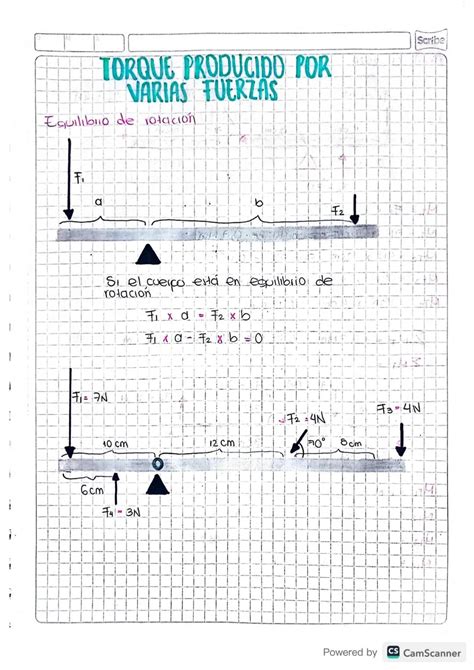 Scribe
TORQUE PRODUCIDO POR
VARIAS FUERZAS
Equilibrio de rotación
F₁
a
b
F₂
Si el cuerpo está en equilibrio de
rotacion
F₁ x a = F₂ x b
F₁ x a - F₂ x b = 0
F₁= 7N
F₂ = 4N
F₃ = 4N
10 cm
12 cm
70°
8cm
6cm
F₄ = 3N
Powered by CS CamScanner